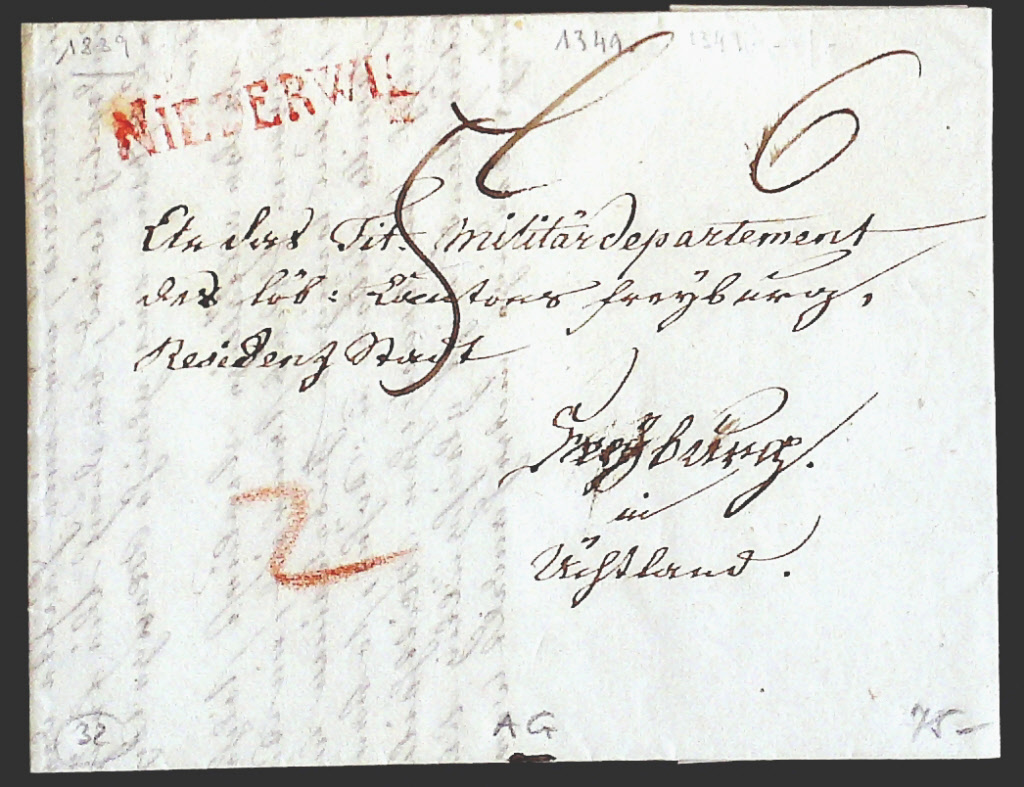 1839
1349.
1349
NIEDERWIL
6
An das Tit. Militärdepartement
des löb: Cantons Freyburg,
Residenz Stadt
Freyburg.
in
Üchtland.
2
32
AG
75-